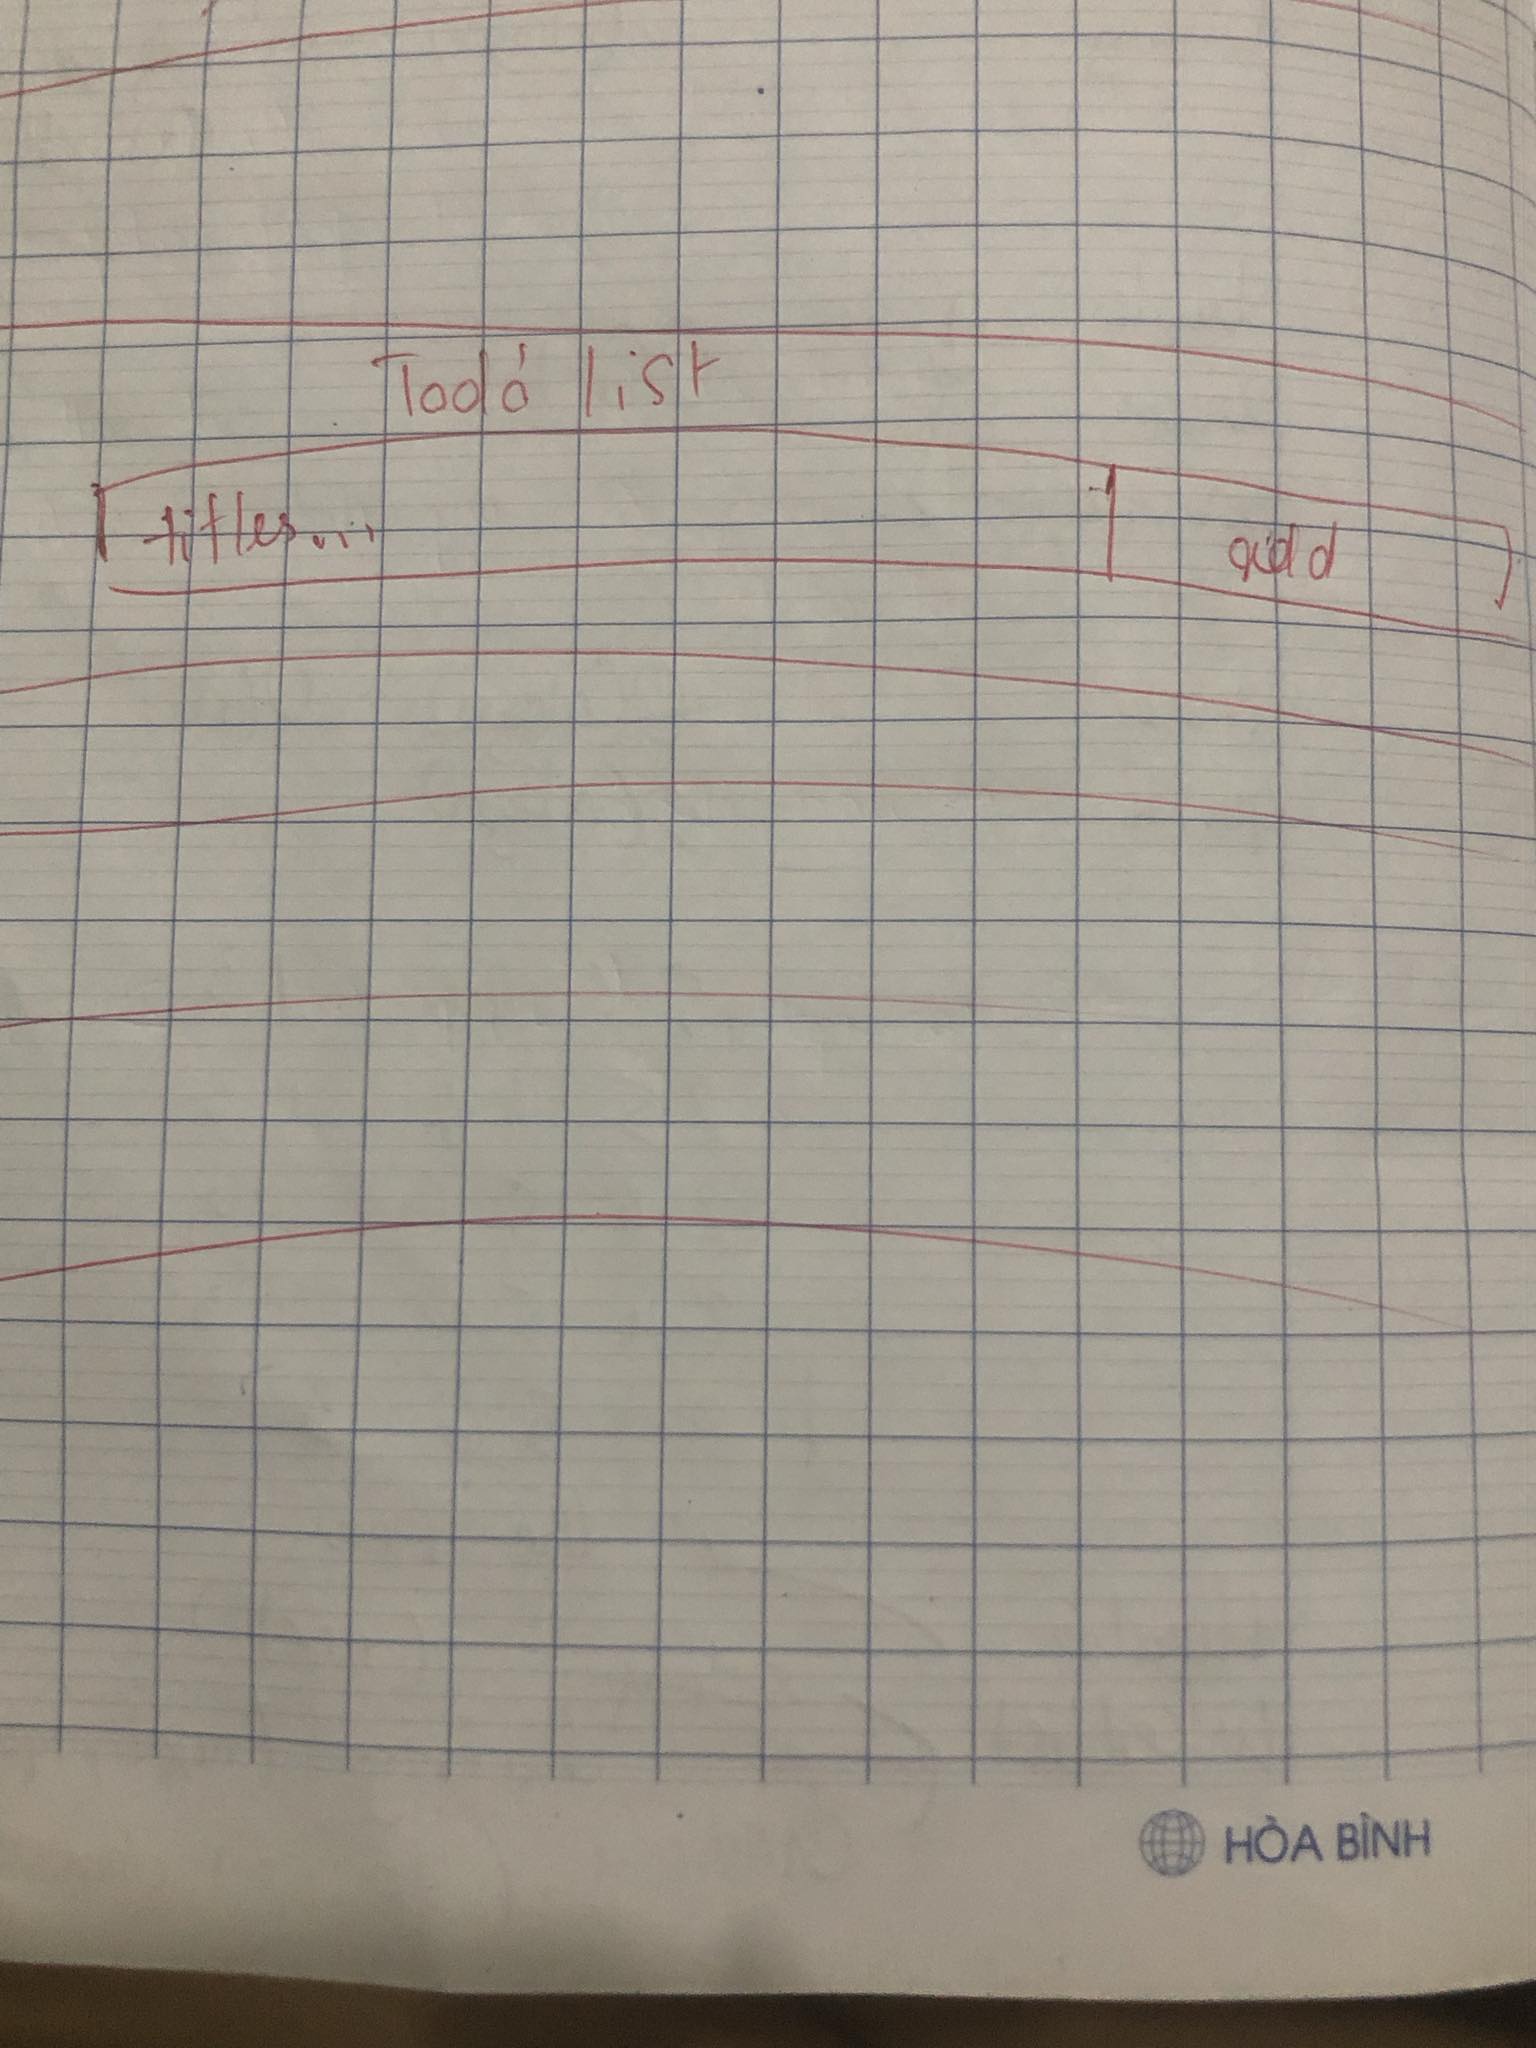 Todo list
titles...
add
HÒA BÌNH